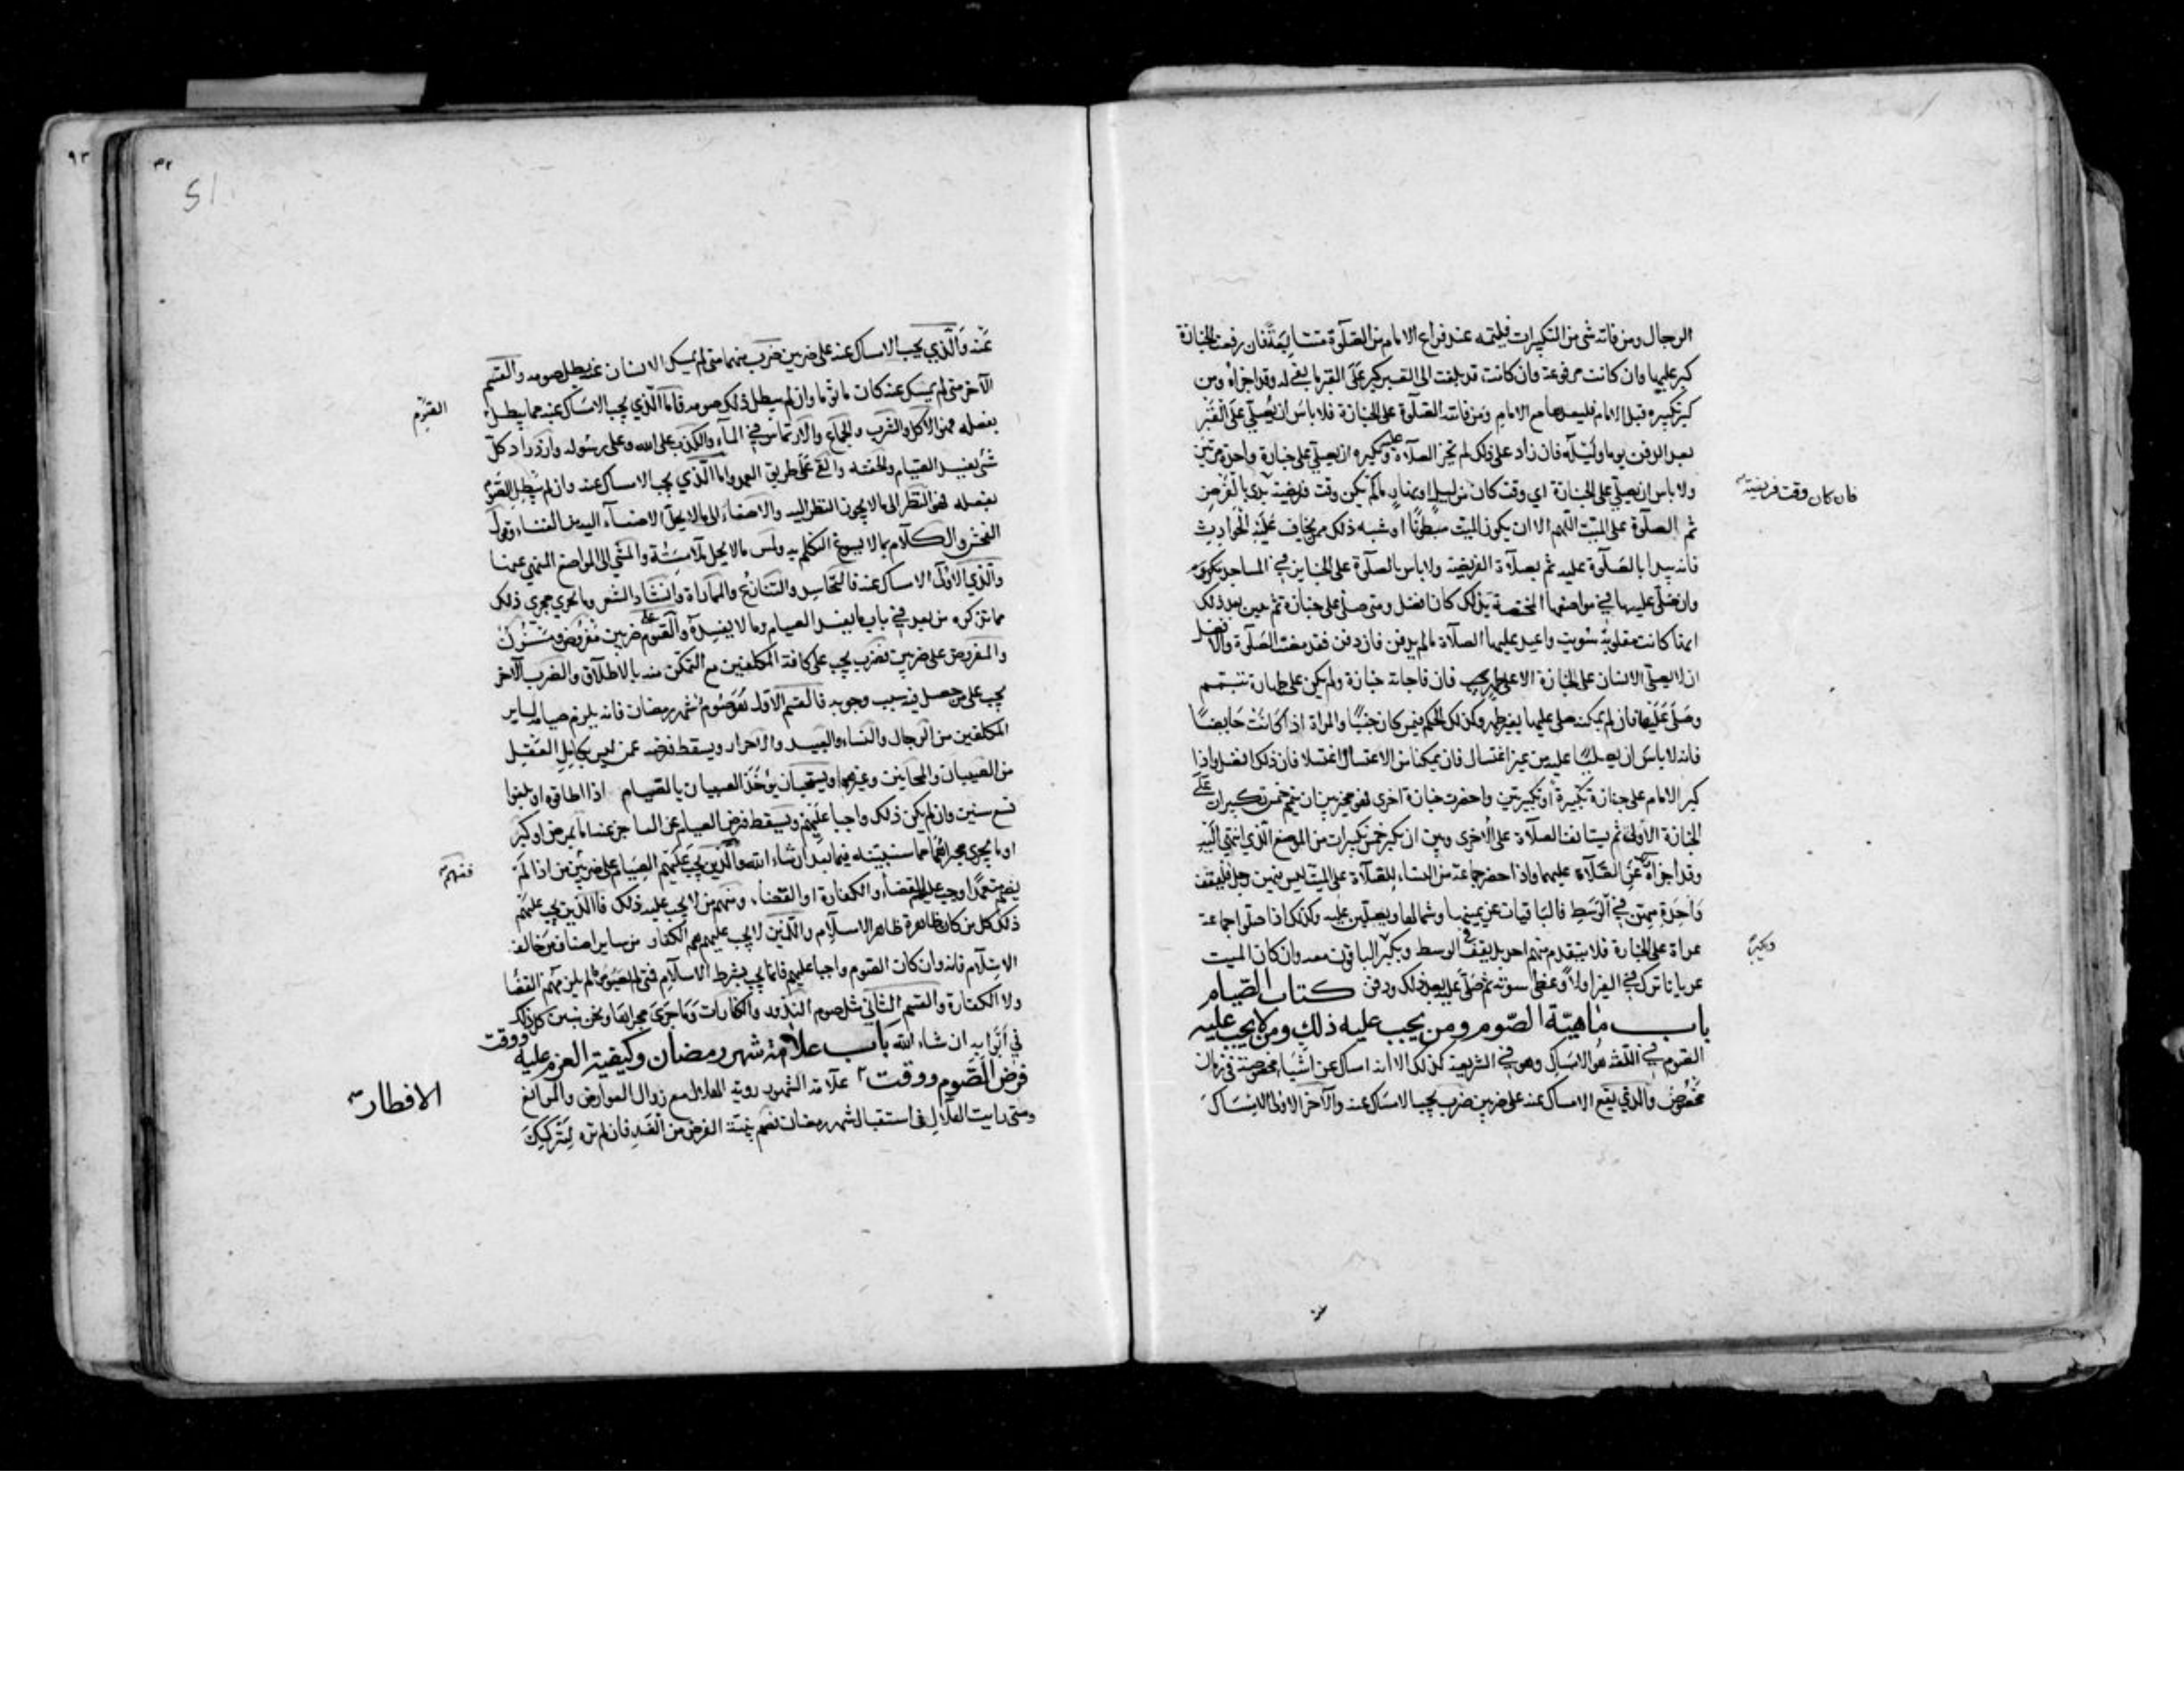 الرجال ومن فاته شئ من التكبيرات فليتمه عند فراغ الامام من الصلوة متتابعة فان رفعت الجنازة
كبر عليها وان كانت مرفوعة وان كانت قد بلغت الى القبر كبر على القبر ما بقى له وقد اجزاه ومن
كبر تكبيره قبل الامام فليعدها مع الامام ومن فاتته الصلوة على الجنازة فلا باس ان يصلى على القبر
بعد الدفن يوما وليلة فان زاد على ذلك لم تجز الصلاة عليه وتكبيره ان يصلى على جنازة واحدة مرتين
ولا باس ان يصلى على الجنازة اى وقت كان من ليل او نهار مالم يكن وقت فريضة بدى بالفرض
فان كان وقت فريضة
ثم الصلوة على الميت اللهم الا ان يكون الميت مبطونا او شبه ذلك ممن يخاف عليه الحوادث
فانه يبدا بالصلوة عليه ثم بصلاة الفريضة ولا باس بالصلوة على الجنايز في المساجد
وان صلى عليها في مواضعها المختصة بذلك كان افضل ومتى صلى على جنازة ثم تبين بعد ذلك
انها كانت مقلوبة سويت واعيد عليها الصلاة مالم يدفن فان دفن فقد مضت الصلوة والافضل
ان لا يصلى الانسان على الجنازة الا على طهر فان فاجاته جنازة ولم يكن على طهارة تيمم
وصلى عليها فان لم يمكنه صلى عليها بغير طهر وكذلك الحكم فيمن كان جنبا والمراة اذا كانت حايضا
فانه لا باس ان يصليا عليه من غير اغتسال فان تمكنا من الاغتسال اغتسلا فان ذلك افضل واذا
كبر الامام على جنازة تكبيرة او تكبيرتين واحضرت جنازة اخرى فهو مخير بين ان يتم خمس تكبيرات على
الجنازة الاولى ثم يستانف الصلاة على الاخرى وبين ان يكبر خمس تكبيرات من الموضع الذي انتهى اليه
وقد اجزاه عن الصلاة عليهما واذا حضر جماعة من النساء للصلاة على الميت ليس فيهن رجل فليقف
واحدة منهن في الوسط والباقيات عن يمينها وشمالها ويصلين عليه وكذلك اذا صلوا جماعة
عراة على الجنازة فلا يتقدم منهم احد بل يقف في الوسط ويكبر الباقون معه وان كان الميت
ويكبر
عريانا ترك في القبر اولا وغطى سوته ثم صلى عليه بعد ذلك ودفن كتاب الصيام
باب ماهية الصوم ومن يجب عليه ذلك ومن لا يجب عليه
الصوم في اللغة هو الامساك وهو في الشريعة كذلك الا انه امساك عن اشياء مخصوصة في زمان
مخصوص والذي يقع الامساك عنه على ضربين ضرب يجب الامساك عنه والآخر الاولى الامساك
٩٣
٣٢
عنه والذي يجب الامساك عنه على ضربين ضرب منهما متى لم يمسك الانسان عنه بطل صومه والقسم
الآخر متى لم يمسك عنه كان ماثوما وان لم يبطل ذلك صومه فاما الذي يجب الامساك عنه مما يبطل
الصوم
بفعله فهو الاكل والشرب والجماع والارتماس في المآء والكذب على الله وعلى رسوله وازدراد كل
شئ يفسد الصيام والحقنة والقئ على طريق العمد واما الذي يجب الامساك عنه وان لم يبطل الصوم
بفعله فهو النظر الى ما لا يجوز النظر اليه والاصغاء الى مالا يحل الاصغآء اليه من الغناء وقول
الفحش والكلام بما لا يسوغ التكلم به ولمس مالا يحل ملامسته والمشى الى المواضع المنهى عنها
والذي الاولى الامساك عنه فالتحاسد والتنازع والمماراة وانشاد الشعر وما يجري مجرى ذلك
مما نذكره من بعد في باب ما يفسد الصيام وما لا يفسده والصوم على ضربين مفروض ومسنون
والمفروض على ضربين فضرب يجب على كافة المكلفين مع التمكن منه بالاطلاق والضرب الآخر
يجب على من حصل فيه سبب وجوبه فالقسم الاول هو صوم شهر رمضان فانه يلزم صيامه لساير
المكلفين من الرجال والنساء والعبيد والاحرار ويسقط فرضه عمن ليس بكامل العقل
من الصبيان والمجانين وغيرهم ويستحب ان يوخذ الصبيان بالصيام اذا اطاقوه او بلغوا
تسع سنين وان لم يكن ذلك واجبا عليهم ويسقط فرض الصيام عن العاجز عنه اما بمرض او كبر
او ما يجري مجراهما مما سنبينه فيما بعد ان شاء الله والذين يجب عليهم الصيام على ضربين من اذا لم
فمنهم
يصم متعمدا وجب عليه القضاء والكفارة او القضاء ومنهم من لا يجب عليه ذلك فالذين يجب عليهم
ذلك كل من كان ظاهره ظاهر الاسلام والذين لا يجب عليهم هم الكفار من ساير اصناف من خالف
الاسلام فانه وان كان الصوم واجبا عليهم فانما يجب بشرط الاسلام فمتى لم يصوموا لم يلزمهم القضا
ولا الكفارة والقسم الثاني مثل صوم النذور والكفارات وما جرى مجراها ونحن نبين كل ذلك
في ابوابه ان شاء الله باب علامة شهر رمضان وكيفية العزم عليه ووقت
فرض الصوم ووقت علامة الشهور رؤية الهلال مع زوال العوارض والموانع
الافطار
ومتى رايت الهلال في استقبال شهر رمضان فصم بنية الفرض من الغد فان لم تره